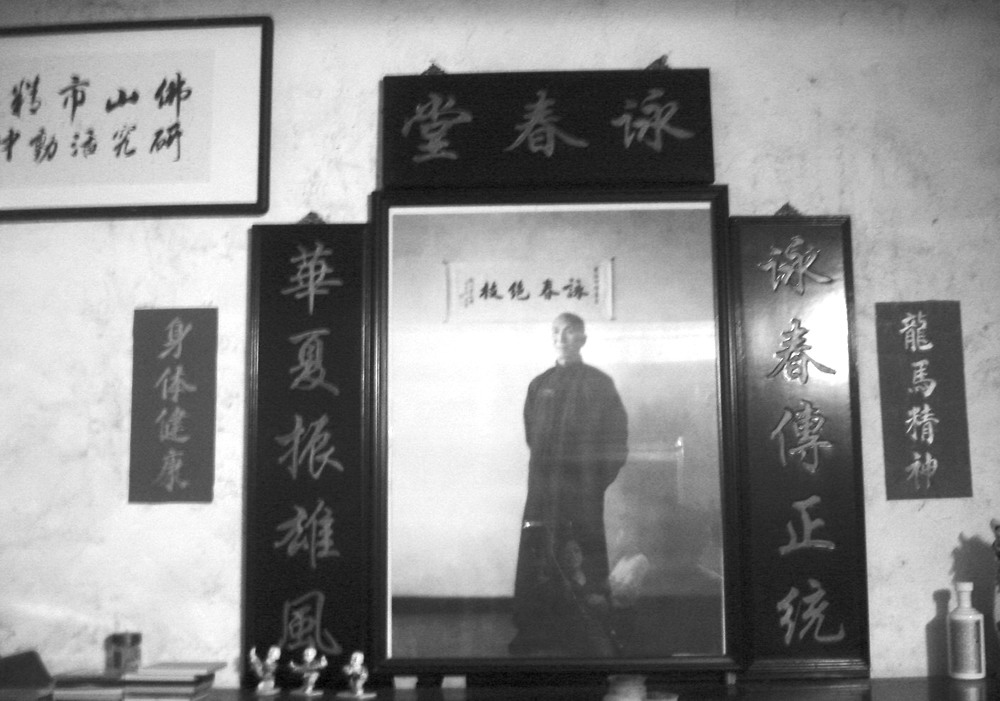 佛山市精
研究活動中
詠春堂
詠春傳正統
華夏振雄風
詠春絕技
龍馬精神
身体健康